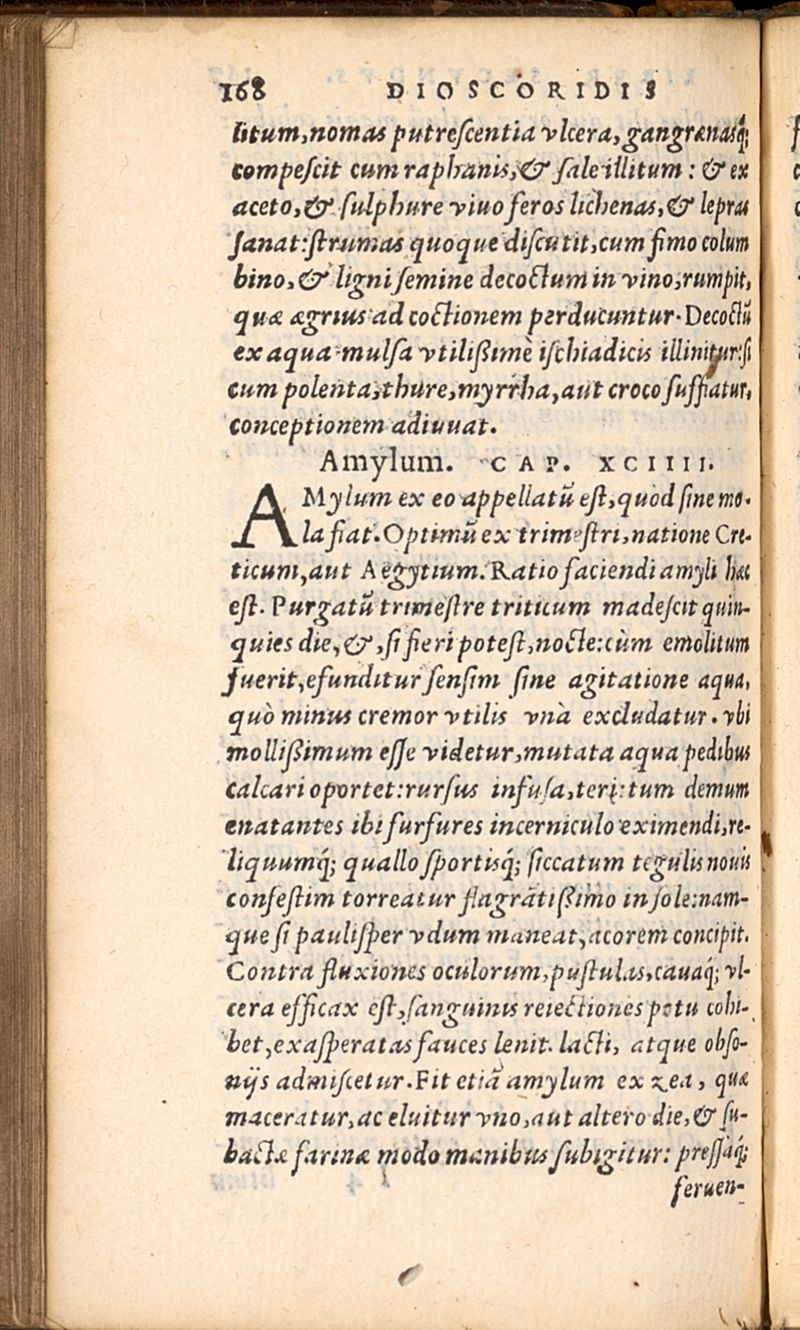 168 DIOSCORIDIS
litum, nomas putreſcentia vlcera, gangrænasq́;
compeſcit cum raphanis, & ſale illitum: & ex
aceto, & ſulphure viuo feros lichenas, & lepras
ſanat: ſtrumas quoque diſcutit, cum fimo colum
bino, & ligni ſemine decoctum in vino, rumpit,
quæ ægrius ad coctionem perducuntur. Decoctū
ex aqua mulſa vtiliſsimè iſchiadicis illinitur: ſi
cum polenta, thure, myrrha, aut croco ſuffiatur,
conceptionem adiuuat.
Amylum. CAP. XCIIII.
AMylum ex eo appellatū eſt, quòd ſine mo-
la fiat. Optimū ex trimeſtri, natione Cre-
ticum, aut Aegytium. Ratio faciendi amyli hæc
eſt. Purgatū trimeſtre triticum madeſcit quin-
quies die, &, ſi fieri poteſt, nocte: cùm emolitum
fuerit, efunditur ſenſim ſine agitatione aqua,
quò minus cremor vtilis vnà excludatur. vbi
molliſsimum eſſe videtur, mutata aqua pedibus
calcari oportet: rurſus infuſa, teri: tum demum
enatantes ibi furfures incerniculo eximendi, re-
liquumq́; quallo ſportisq́; ſiccatum tegulis nouis
confeſtim torreatur flagrātiſsimo in ſole: nam-
que ſi pauliſper vdum maneat, acorem concipit.
Contra fluxiones oculorum, puſtulas, cauaq́; vl-
cera efficax eſt, ſanguinis reiectiones potu cohi-
bet, exaſperatas fauces lenit. lacti, atque obſo-
nijs admiſcetur. Fit etiā amylum ex zea, quæ
maceratur, ac eluitur vno, aut altero die, & ſu-
bactæ farinæ modo manibus ſubigitur: preſſaq́;
feruen-